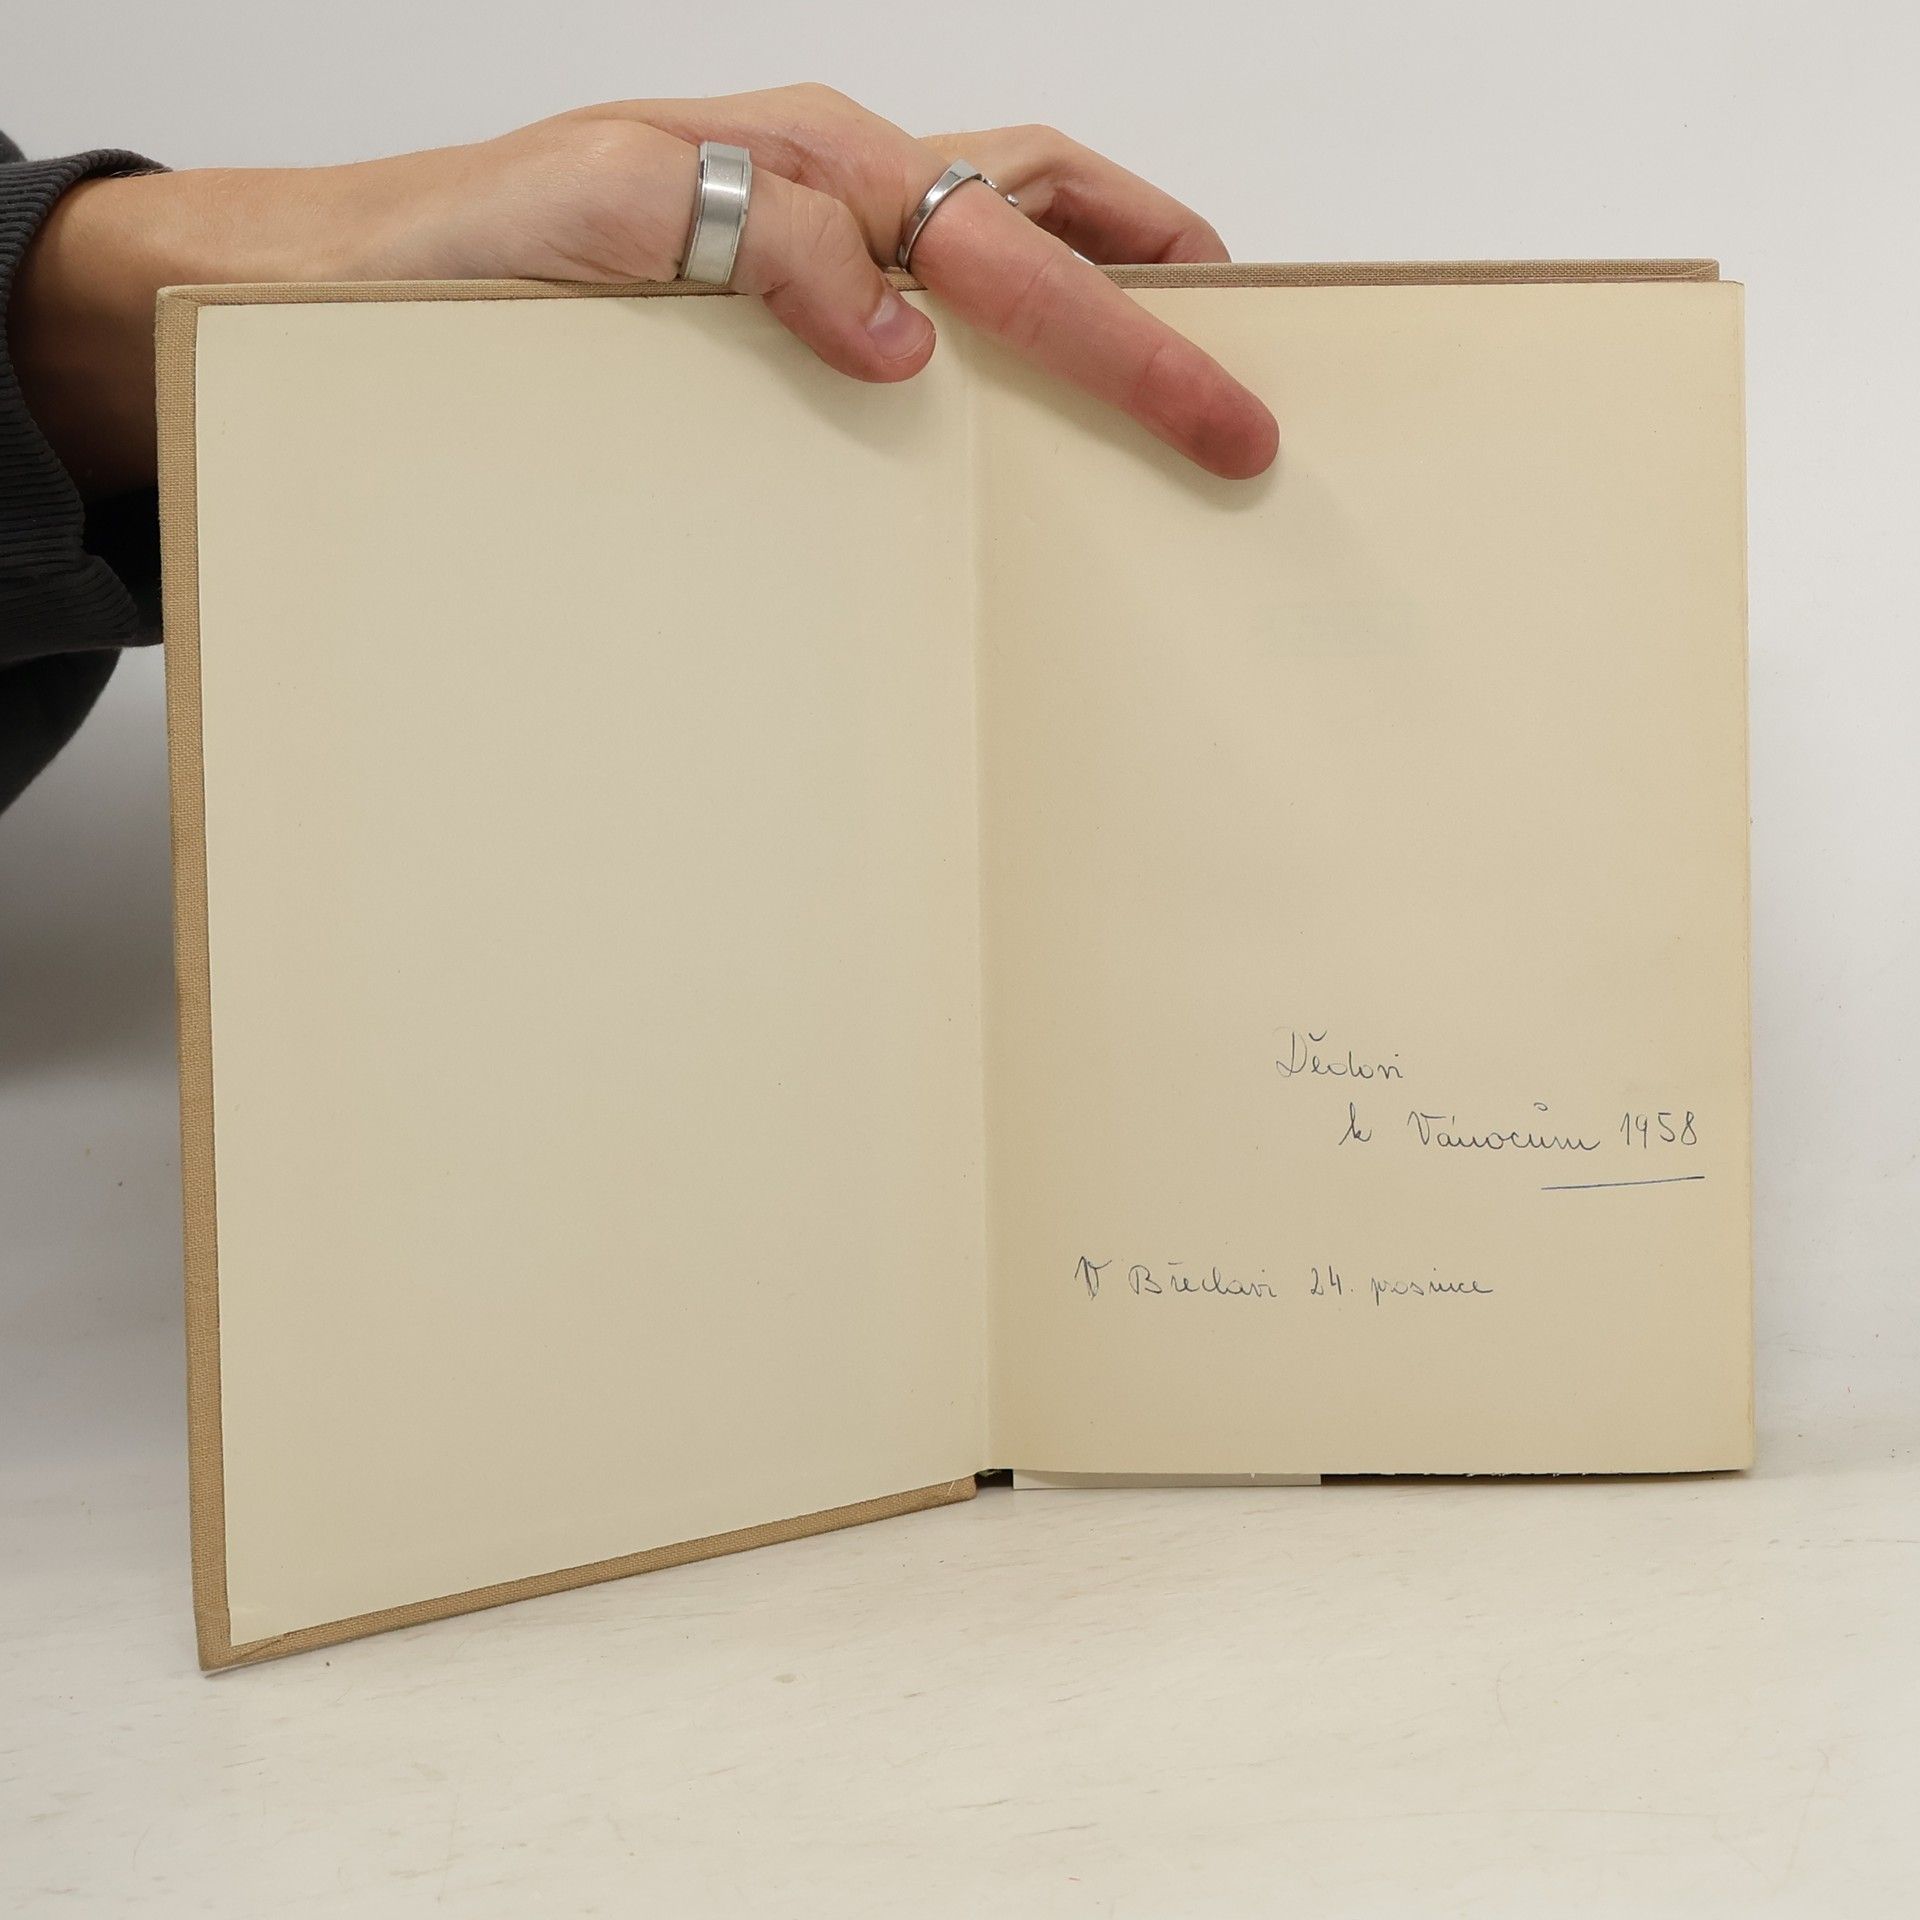 Dědovi
k Vánocům 1958
V Břeclavi 24. prosince